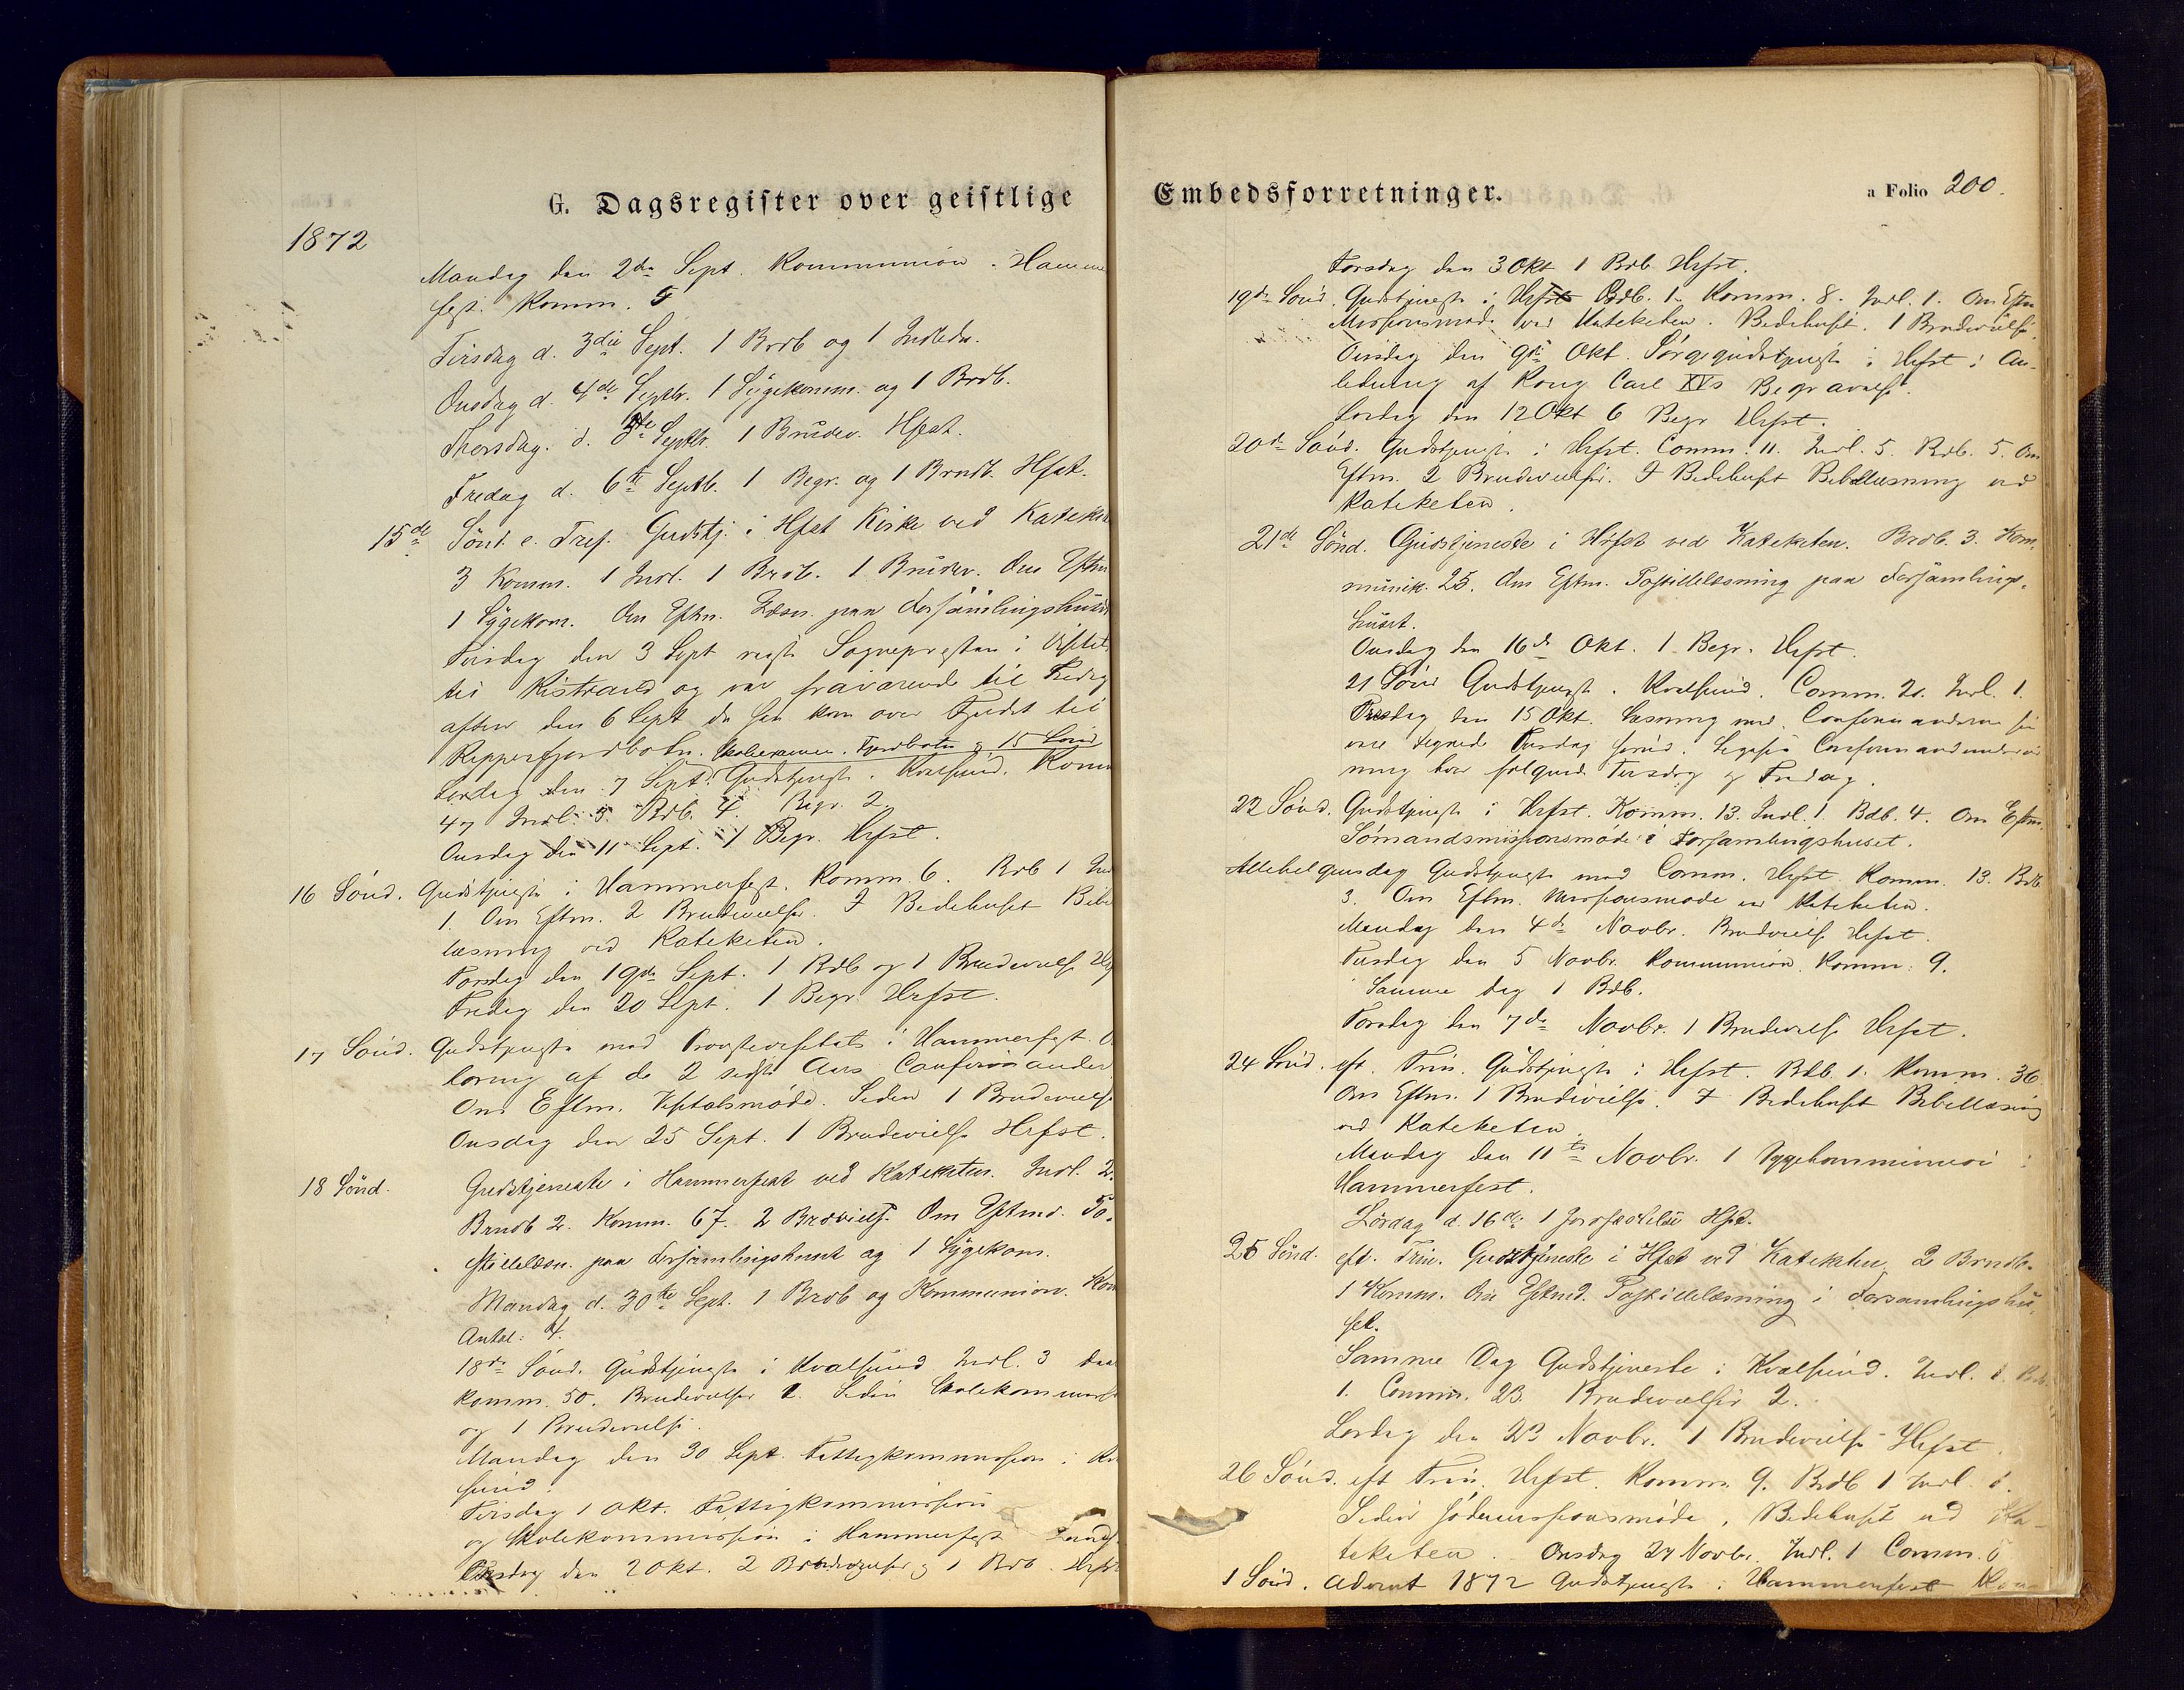 G. Dagsregister over geistlige
1872
Mandag den 2den Sept. Kommunion i Hammer
fest. Komm. 5
Tirsdag d. 3die Sept. 1 Brdb og 1 Indleda.
Onsdag d. 4de Septbr. 1 Sygekomm. og 1 Brdb.
Thorsdag. d. 5te Septbr. 1 Brudev. Hfest.
Fredag d. 6te Septb. 1 Begr. og 1 Brndb. Hfst.
15de Sönd. e. Tref. Gudstj. i Hfst Kirke ved Kateke
3 Komm. 1 Indl. 1 Brdb. 1 Brudev. Om Eftm
1 Sygekom. Om Eftm. Læsn. paa Forsamlingshuset
Tirsdag den 3 Sept reiste Sognepresten i Visitats
til Kistrand og var fraværende til Fredag
aften den 6 Sept da han kom over Fjeldet til
Repperfjordbotn. Skoleexamen i Fjordbotn og 15 Sönd
Lørdag den 7 Sept. Gudstjeneste i Kvalsund. Komm
47 Indl. 5. Bdb. 4. Begr. 2
Onsdag den 11 Sept. 1 Begr. Hrfst.
16 Sönd. Gudstjeneste i Hammerfest. Komm. 6. Bdb 1 Ind
1. Om Eftm. 2 Brudevielser. I Bedehuset Bibel
læsning ved Kateketen.
Torsdag den 19de Sept. 1 Bdb og 1 Brudevielse Hf
Fredag den 20 Sept. 1 Begr. Hrfst.
17 Sönd. Gudstjeneste med Provstevisitats i Hammerfest. O
høring af de 2 sidste Aars Confirmander
Om Eftm. Visitatsmøde. Siden 1 Brudevielse
Onsdag den 25 Sept. 1 Brudevielse Hrfst.
18 Sönd. Gudstjeneste i Hammerfest ved Kateketen. Indl. 2.
Brndb 2. Komm. 67. 2 Brdviels. Om Eftmd. Po-
stillelæsn. paa Forsamlingshuset og 1 Sygekom.
Mandag d. 30te Sept. 1 Brdb og Kommunion. Kom
Antal: 4.
18de Sönd. Gudstjeneste i Kvalsund Indl. 3 Daa
Komm. 50. Brudevielser 2. Siden Skolekommission
og 1 Brudevielse.
Mandag den 30 Sept. Fattigkommission i Kv
sund.
Tirsdag 1 Okt. Fattigkommission
og Skolekommission i Hammerfest
Onsdag den 2 Okt. 2 Brudevielser og 1 Bdb. Hrfst
Embedsforretninger.
a Folio 200.
Torsdag den 3 Okt 1 Bdb. Hrfst.
19de Sönd. Gudstjeneste i Hrfst Bdb. 1. Komm. 8. Indl. 1. Om Eftm
Missionsmøde ved Kateketen i Bedehuset. 1 Brudevielse.
Onsdag den 9de Okt. Sørgegudstjeneste i Hrfst i An-
ledning af Kong Carl XVs Begravelse.
Lørdag den 12 Okt 6 Begr Hrfst.
20de Sönd. Gudstjeneste i Hrfst. Comm. 11. Indl. 5. Bdb. 5. Om
Eftm. 2 Brudevielser. I Bedehuset Bibellæsning ved
Kateketen.
21de Sönd. Gudstjeneste i Hrfst ved Kateketen. Brdb. 3. Kom.
munik. 25. Om Eftm. Postillelæsning paa Forsamlings-
huset.
Onsdag den 16de Okt. 1 Begr. Hrfst.
21 Sönd Gudstjeneste i Kvalsund. Comm. 20. Indl. 1.
Tirsdag den 15 Okt. Læsning med Confirmanderne
vare tegnede Tirsdag forud. Ligesaa Confirmandunderviis
ning hver følgende Tirsdag og Fredag.
22 Sönd. Gudstjeneste i Hrfst. Komm. 13. Indl. 1. Bdb. 4. Om Eftm.
Sömandsmissionsmöde i Forsamlingshuset.
Allehelgensdag Gudstjeneste med Comm. Hrfst Komm. 13. Bdb
3. Om Eftm. Missionsmøde ved Kateketen.
Mandag den 4de Novbr. Brudviels Hrfst.
Tirsdag den 5 Novbr. Kommunion. Komm. 9.
Samme Dag 1 Bdb.
Torsdag den 7de Novbr. 1 Brudevielse Hrfst.
24 Sönd. eft. Trin. Gudstjeneste i Hrfst. Bdb. 1. Komm. 36
Om Eftm. 1 Brudevielse. I Bedehuset Bibellæsning
ved Kateketen.
Mandag den 11te Novbr. 1 Sygekommunion i
Hammerfest.
Lördag d. 16de 1 Jordfæstelse Hfst.
25 Sönd. eft. Trin. Gudstjeneste i Hfst ved Kateketen 2 Brndb.
1 Komm. Om Eftmd. Postillelæsning i Forsamlingshu-
set.
Samme Dag Gudstjeneste i Kvalsund. Indl. 1. Bdb.
1. Comm. 23. Brudevielser 2.
Lørdag den 23 Novbr. 1 Brudevielse Hrfst.
26 Sönd. eft Trin. Hrfst. Komm. 9. Bdb 1 Indl. 1.
Siden Jødemissionsmøde i Bedehuset ved Ka-
teketen. Onsdag 27 Novbr. Indl. 1 Comm. 6
1 Sönd. Advent 1872 Gudstjeneste i Hammerfest Kom